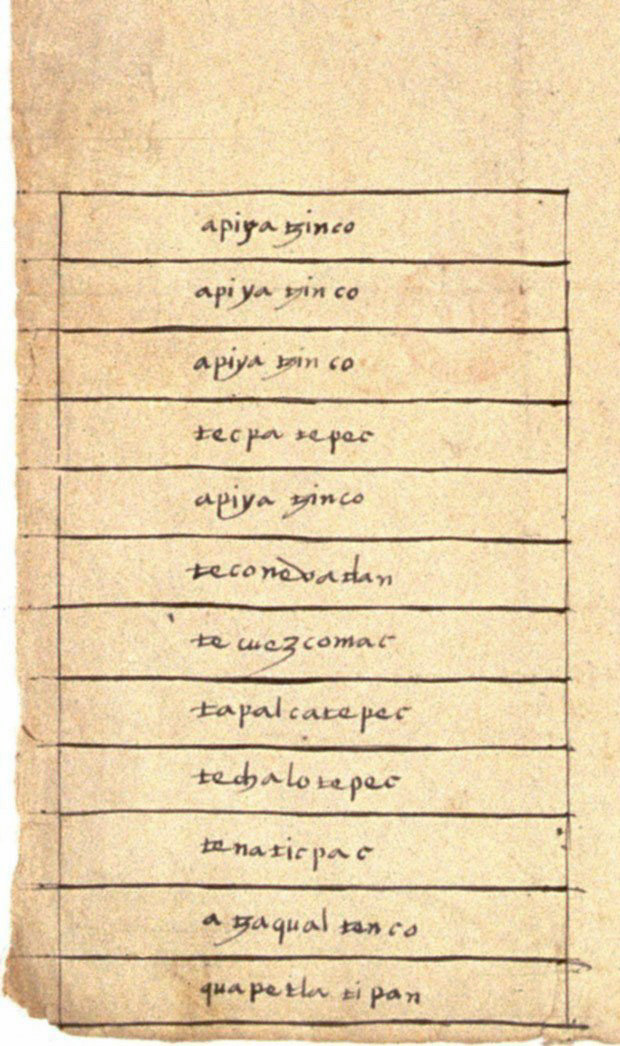 apiya tzinco
apiya tzinco
apiya tzin co
tecpa tepec
apiya tzinco
teconevatlan
te cuezcomac
tapalcatepec
techalotepec
tenaticpac
a tzaqual tenco
quapetla tipan